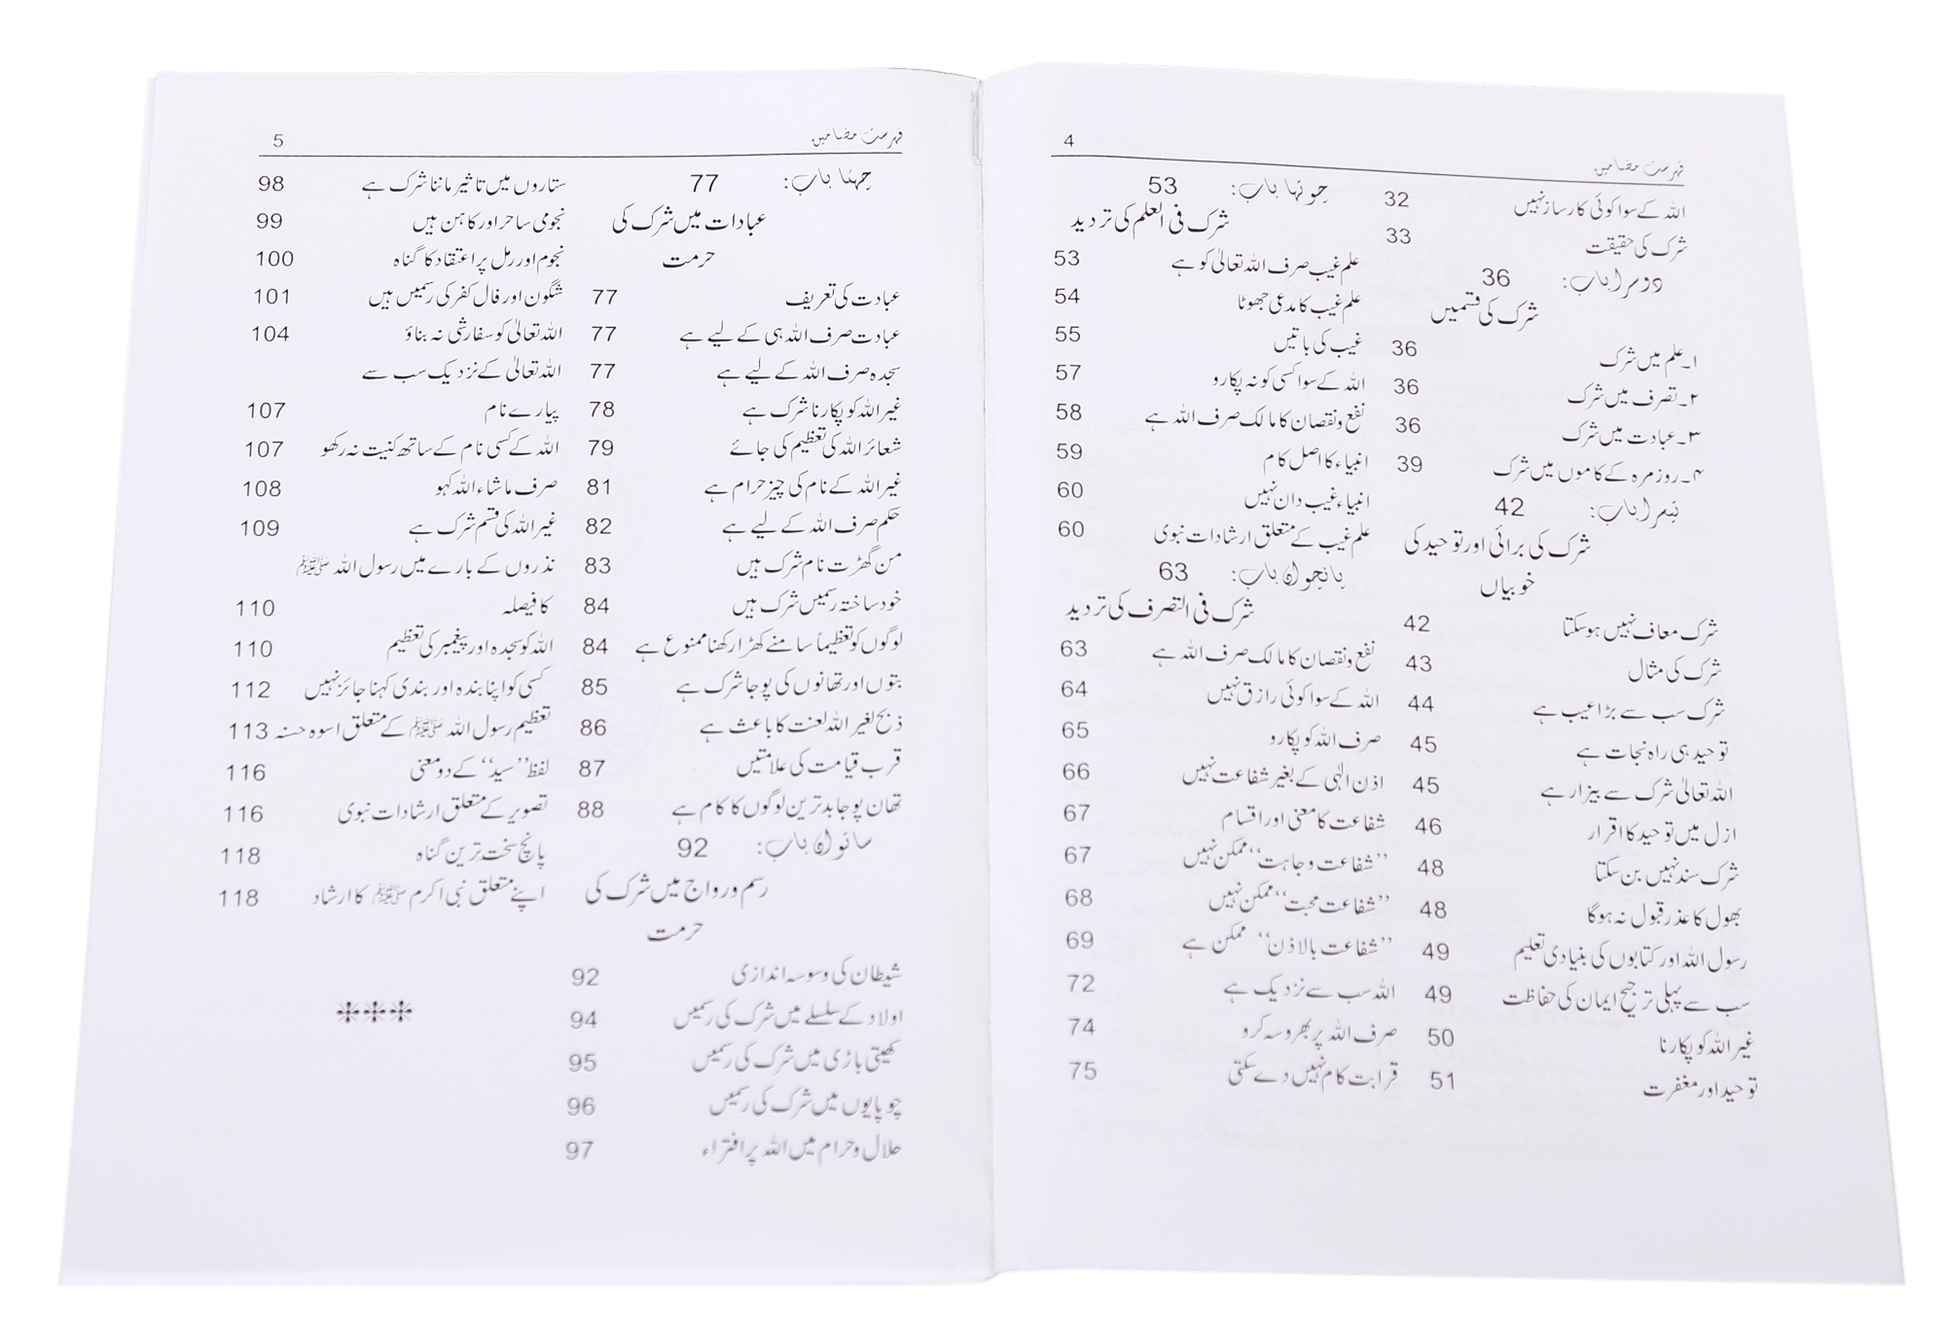 فہرست مضامین 4
اللہ کے سوا کوئی کارساز نہیں 32
شرک کی حقیقت 33
دوسرا باب: 36
شرک کی قسمیں
۱۔علم میں شرک 36
۲۔تصرف میں شرک 36
۳۔عبادت میں شرک 36
۴۔روزمرہ کے کاموں میں شرک 39
تیسرا باب: 42
شرک کی برائی اور توحید کی
خوبیاں
شرک معاف نہیں ہوسکتا 42
شرک کی مثال 43
شرک سب سے بڑا عیب ہے 44
توحید ہی راہ نجات ہے 45
اللہ تعالیٰ شرک سے بیزار ہے 45
ازل میں توحید کا اقرار 46
شرک سند نہیں بن سکتا 48
بھول کا عذر قبول نہ ہوگا 48
رسول اللہ اور کتابوں کی بنیادی تعلیم 49
سب سے پہلی ترجیح ایمان کی حفاظت 49
غیر اللہ کو پکارنا 50
توحید اور مغفرت 51
چوتھا باب: 53
شرک فی العلم کی تردید
علم غیب صرف اللہ تعالیٰ کو ہے 53
علم غیب کا مدعی جھوٹا 54
غیب کی باتیں 55
اللہ کے سوا کسی کو نہ پکارو 57
نفع و نقصان کا مالک صرف اللہ ہے 58
انبیاء کا اصل کام 59
انبیاء غیب دان نہیں 60
علم غیب کے متعلق ارشادات نبوی 60
پانچواں باب: 63
شرک فی التصرف کی تردید
نفع و نقصان کا مالک صرف اللہ ہے 63
اللہ کے سوا کوئی رازق نہیں 64
صرف اللہ کو پکارو 65
اذن الٰہی کے بغیر شفاعت نہیں 66
شفاعت کا معنی اور اقسام 67
’’شفاعت وجاہت‘‘ ممکن نہیں 67
’’شفاعت محبت‘‘ ممکن نہیں 68
’’شفاعت بالاذن‘‘ ممکن ہے 69
اللہ سب سے نزدیک ہے 72
صرف اللہ پر بھروسہ کرو 74
قرابت کام نہیں دے سکتی 75
فہرست مضامین 5
چھٹا باب: 77
عبادات میں شرک کی
حرمت
عبادت کی تعریف 77
عبادت صرف اللہ ہی کے لیے ہے 77
سجدہ صرف اللہ کے لیے ہے 77
غیر اللہ کو پکارنا شرک ہے 78
شعائر اللہ کی تعظیم کی جائے 79
غیر اللہ کے نام کی چیز حرام ہے 81
حکم صرف اللہ کے لیے ہے 82
من گھڑت نام شرک ہیں 83
خود ساختہ رسمیں شرک ہیں 84
لوگوں کو تعظیماً سامنے کھڑا رکھنا ممنوع ہے 84
بتوں اور تھانوں کی پوجا شرک ہے 85
ذبح لغیر اللہ لعنت کا باعث ہے 86
قرب قیامت کی علامتیں 87
تھان پوجا بدترین لوگوں کا کام ہے 88
ساتواں باب: 92
رسم و رواج میں شرک کی
حرمت
شیطان کی وسوسہ اندازی 92
اولاد کے سلسلے میں شرک کی رسمیں 94
کھیتی باڑی میں شرک کی رسمیں 95
چوپایوں میں شرک کی رسمیں 96
حلال و حرام میں اللہ پر افتراء 97
ستاروں میں تاثیر ماننا شرک ہے 98
نجومی ساحر اور کاہن ہیں 99
نجوم اور رمل پر اعتقاد کا گناہ 100
شگون اور فال کفر کی رسمیں ہیں 101
اللہ تعالیٰ کو سفارشی نہ بناؤ 104
اللہ تعالیٰ کے نزدیک سب سے
پیارے نام 107
اللہ کے کسی نام کے ساتھ کنیت نہ رکھو 107
صرف ماشاء اللہ کہو 108
غیر اللہ کی قسم شرک ہے 109
نذروں کے بارے میں رسول اللہ ﷺ
کا فیصلہ 110
اللہ کو سجدہ اور پیغمبر کی تعظیم 110
کسی کو اپنا بندہ اور بندی کہنا جائز نہیں 112
تعظیم رسول اللہ ﷺ کے متعلق اسوہ حسنہ 113
لفظ ’’سید‘‘ کے دو معنی 116
تصویر کے متعلق ارشادات نبوی 116
پانچ سخت ترین گناہ 118
اپنے متعلق نبی اکرم ﷺ کا ارشاد 118